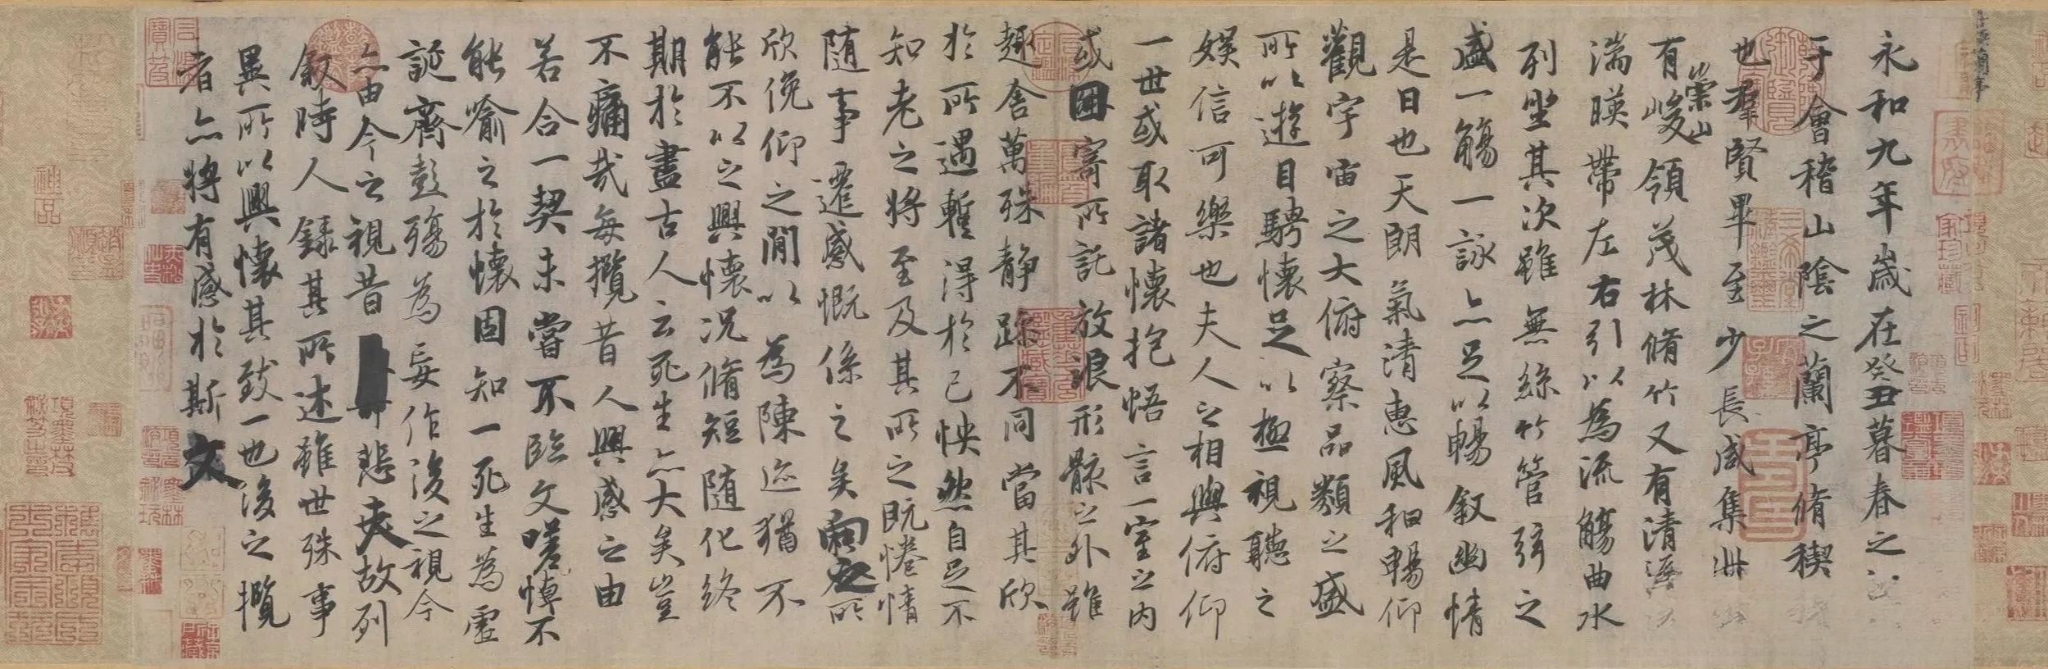 永和九年歲在癸丑暮春之
于會稽山陰之蘭亭脩稧
也群賢畢至少長咸集此
有崇山峻領茂林脩竹又有清
湍暎帶左右引以為流觴曲水
列坐其次雖無絲竹管弦之
盛一觴一詠亦足以暢叙幽情
是日也天朗氣清惠風和暢仰
觀宇宙之大俯察品類之盛
所以遊目騁懷足以極視聽之
娛信可樂也夫人之相與俯仰
一世或取諸懷抱悟言一室之內
或因寄所託放浪形骸之外雖
趣舍萬殊靜躁不同當其欣
於所遇蹔得於己怏然自足不
知老之將至及其所之既惓情
隨事遷感慨係之矣向之所
欣俛仰之間以為陳迹猶不
能不以之興懷況脩短隨化終
期於盡古人云死生亦大矣豈
不痛哉每攬昔人興感之由
若合一契未嘗不臨文嗟悼不
能喻之於懷固知一死生為虛
誕齊彭殤為妄作後之視今
亦由今之視昔悲夫故列
叙時人錄其所述雖世殊事
異所以興懷其致一也後之攬
者亦將有感於斯文
神品